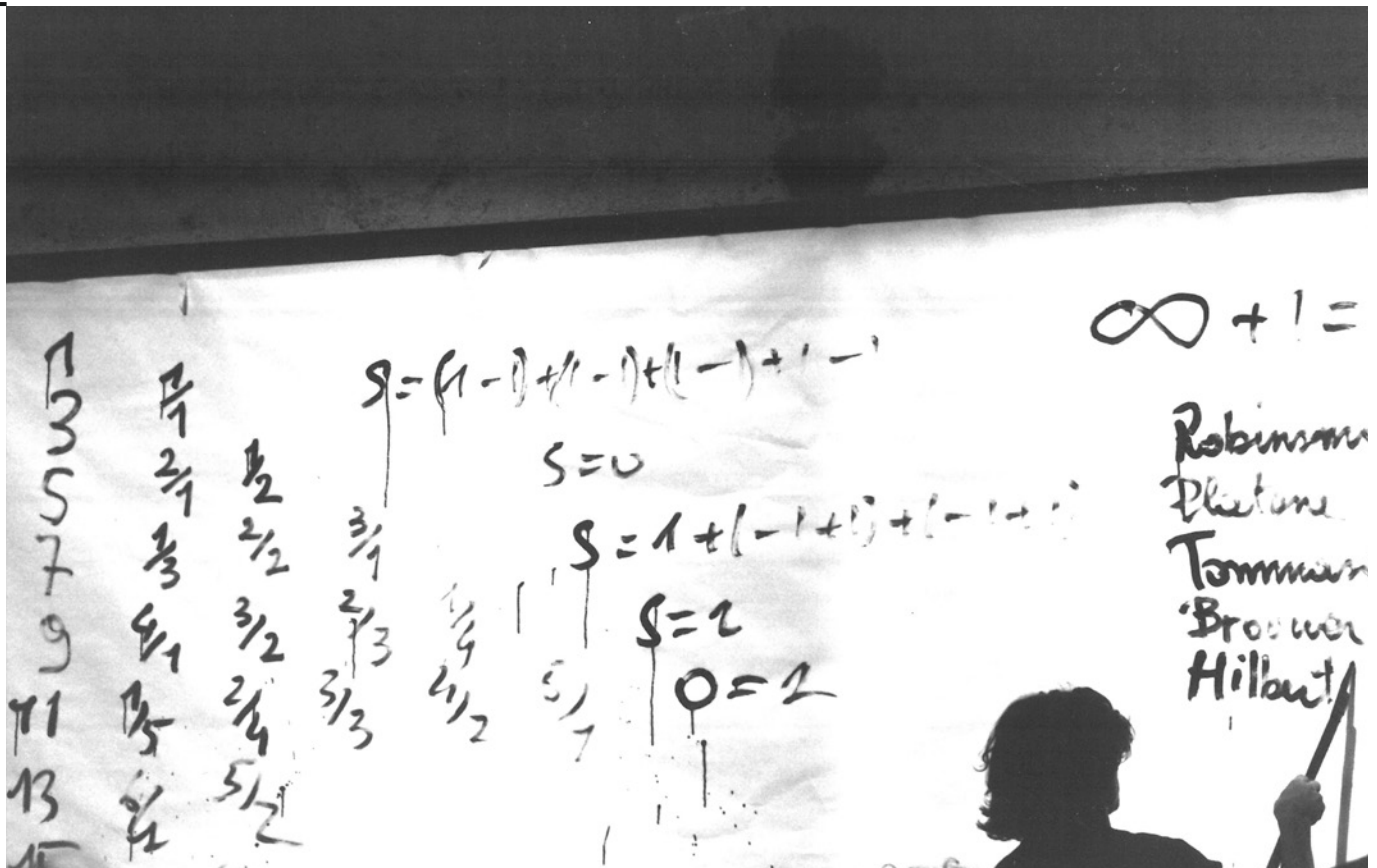 1
3
5
7
9
11
13
15
1/1
2/1 1/2
1/3 2/2 3/1
4/1 3/2 2/3 1/4
1/5 2/4 3/3 4/2 5/1
5/2
S=(1-1)+(1-1)+(1-1)+1-1
S=0
S=1+(-1+1)+(-1+1)
S=1
0=1
∞+1=
Robinson
Platone
Tommas
Brouwer
Hilbert